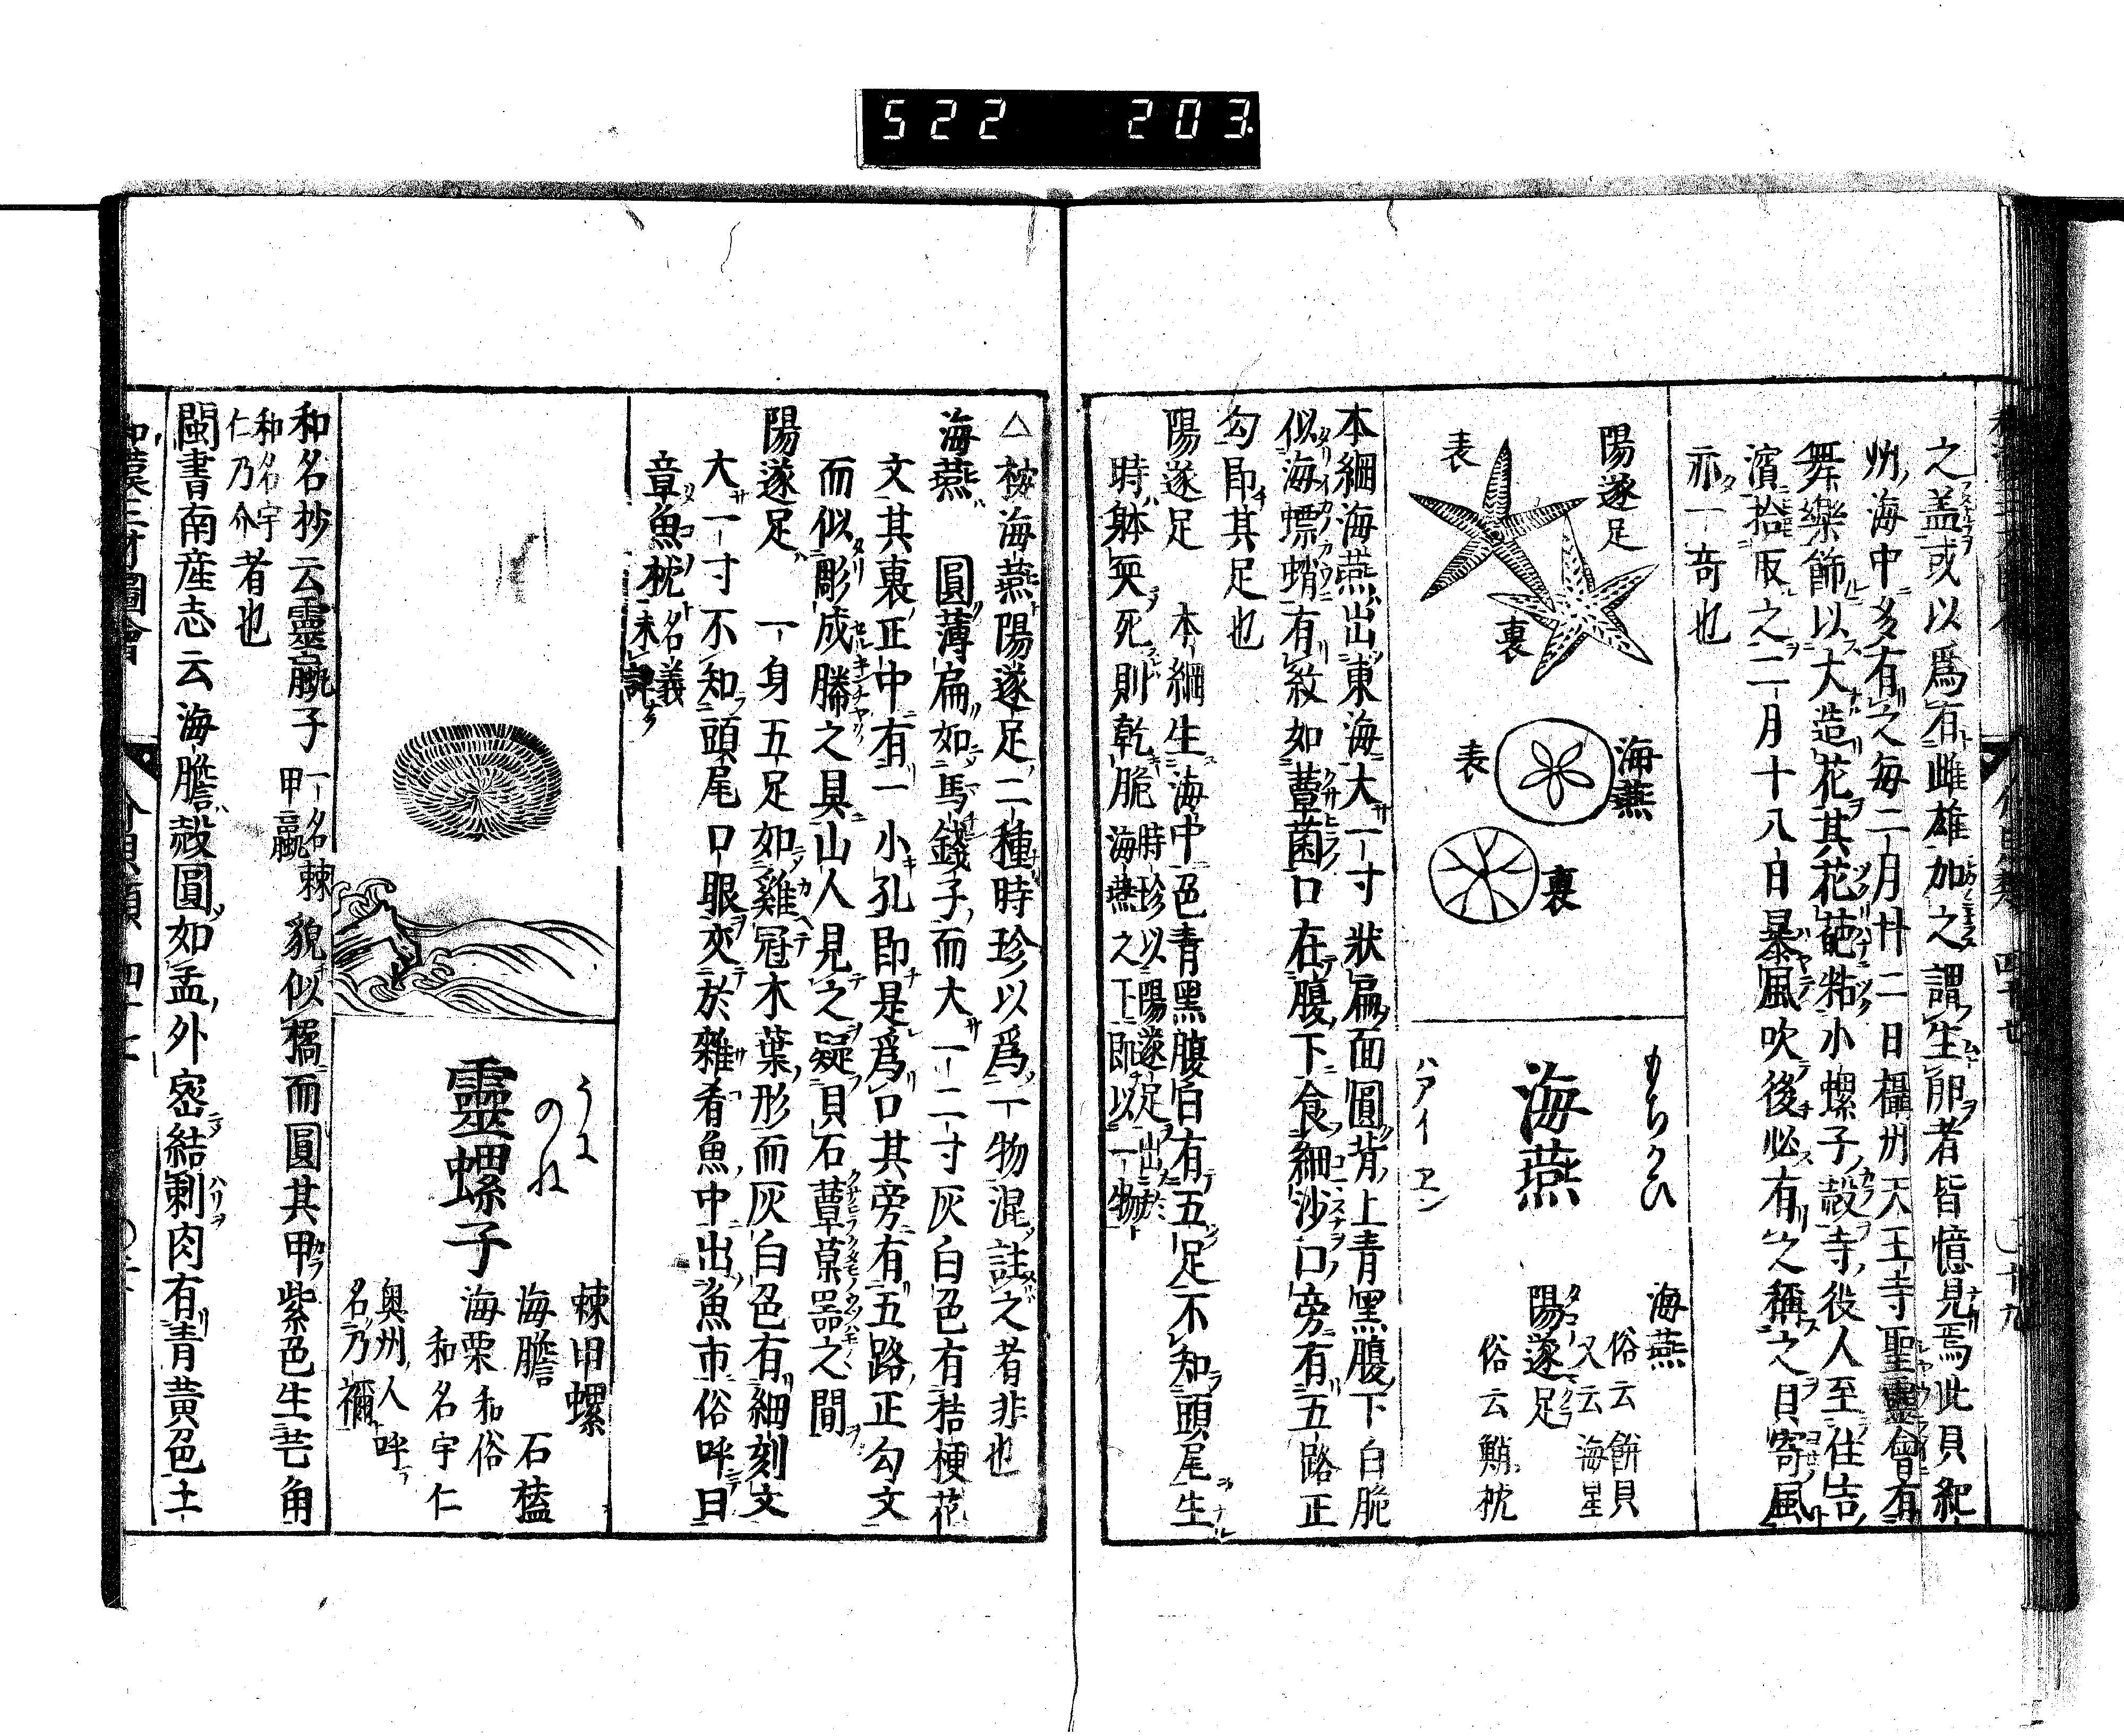 522 203
之盖或以爲有雌雄加之謂生卵者皆憶見焉此貝紀
州海中多有之毎二月廿二日攝州天王寺聖靈會有
舞樂飾以大造花其花葩粘小螺子殻寺役人至住吉
濱拾取之二月十八日暴風吹後必有之稱之貝寄風
亦一奇也
陽遂足
表
裏
海燕
表
裏
もちかひ
海燕
ハアイ ヱン
海燕
俗云餅貝
又云海星
陽遂足
俗云鮹枕
本綱海燕出東海大一寸狀扁面圓背上青黑腹下白脆
似海螵蛸有紋如蕈菌口在腹下食細沙口旁有五路正
勾即其足也
陽遂足 本綱生海中色青黑腹白有五足不知頭尾生
時躰耎死則乾脆 時珍以陽遂足出於
海燕之下即以一物
△桉海燕陽遂足二種時珍以爲一物混註之者非也
海燕 圓薄扁如馬錢子而大一二寸灰白色有桔梗花
文其裏正中有一小孔即是爲口其旁有五路正勾文
而似彫成滕之具山人見之疑貝石蕈菓器之間
陽遂足 一身五足如雞冠木葉形而灰白色有細刻文
大一寸不知頭尾口眼交於雜肴魚中出魚市俗呼曰
章魚枕 名義
未詳
うに
のね
靈螺子
棘甲螺
海膽 石榼
海栗 和俗
和名宇仁
奥州人呼
名乃禰
和名抄云靈蠃子 一名棘
甲蠃 貌似橘而圓其甲紫色生芒角
和名宇
仁乃介 者也
閩書南産志云海膽殻圓如盂外密結刺肉有青黄色土